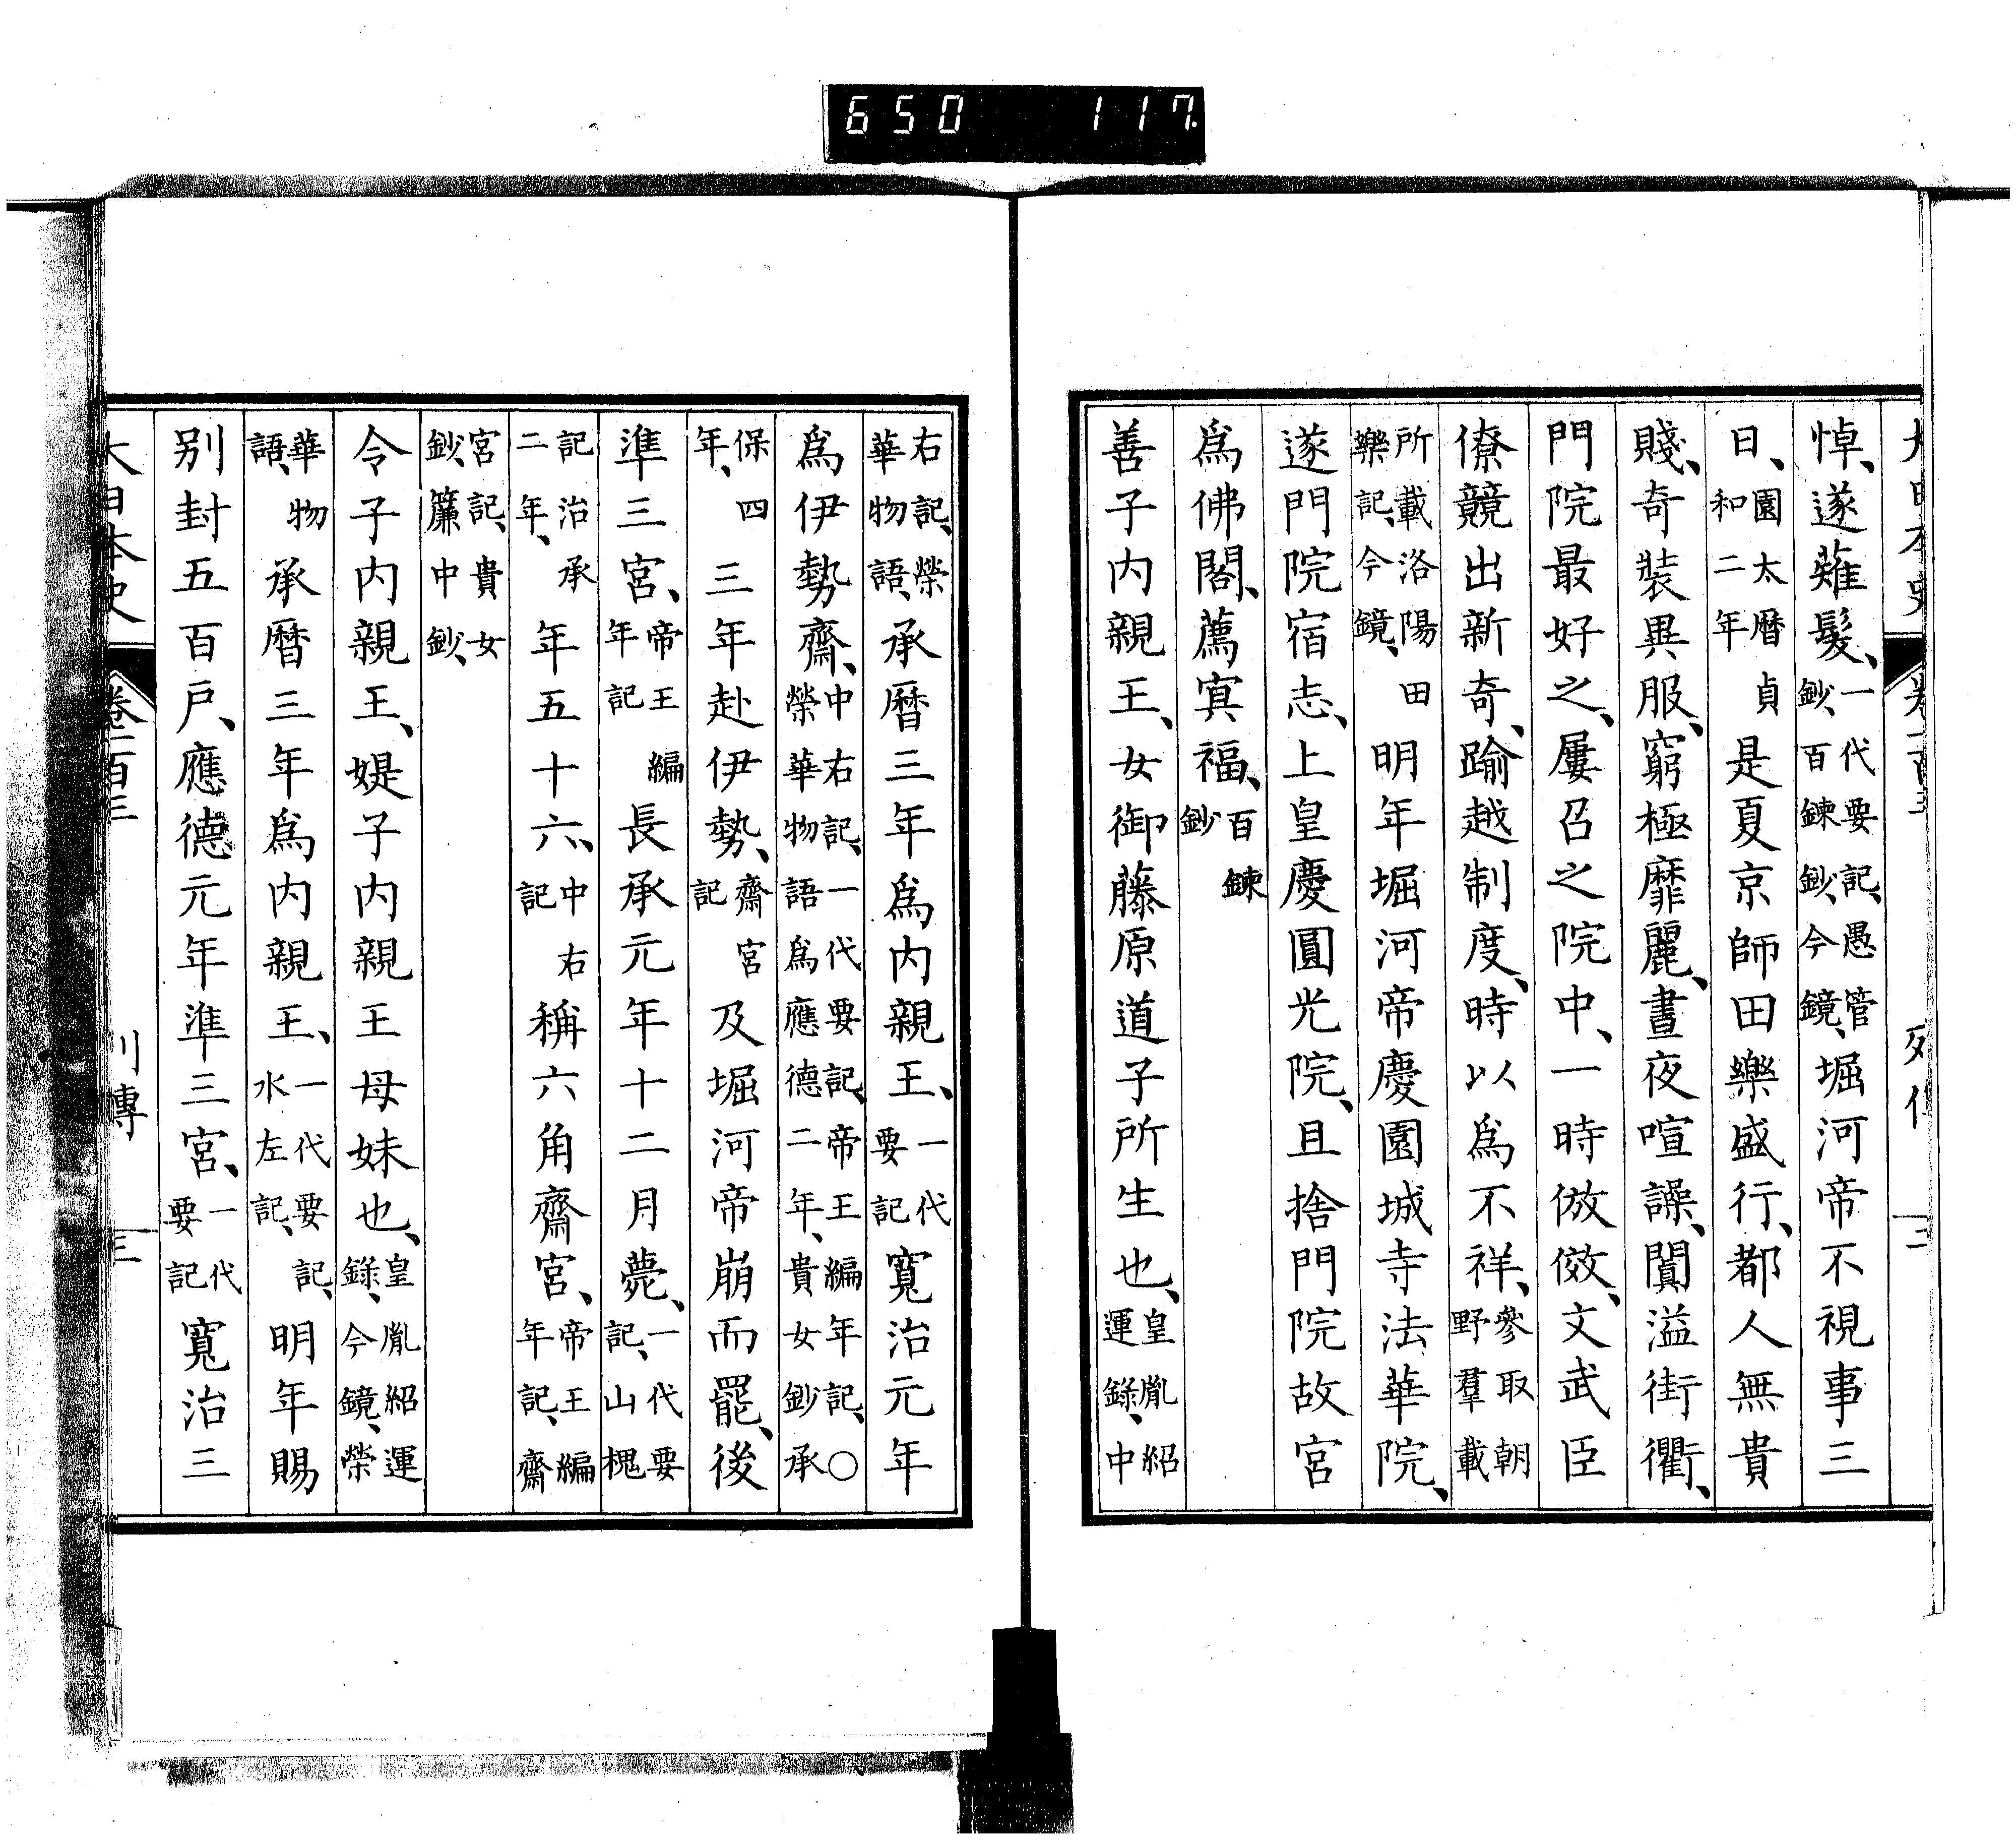 650 117.
悼、遂薙髮、一代要記、愚管鈔、百鍊鈔、今鏡、堀河帝不視事三
日、園太曆貞和二年是夏京師田樂盛行、都人無貴
賤、奇裝異服、窮極靡麗、晝夜喧譟、闐溢街衢、
門院最好之、屢召之院中、一時倣傚、文武臣
僚競出新奇、踰越制度、時以爲不祥、參取朝野羣載
所載洛陽田樂記、今鏡、明年堀河帝慶園城寺法華院、
遂門院宿志、上皇慶圓光院、且捨門院故宮
爲佛閣、薦冥福、百鍊鈔
善子內親王、女御藤原道子所生也、皇胤紹運錄、中
右記、榮華物語、承曆三年爲內親王、一代要記寬治元年
爲伊勢齋、中右記、一代要記、帝王編年記、○榮華物語爲應德二年、貴女鈔承
保四年、三年赴伊勢、齋宮記及堀河帝崩而罷、後
準三宮、帝王編年記長承元年十二月薨、一代要記、山槐
記治承二年、年五十六、中右記稱六角齋宮、帝王編年記、齋
宮記、貴女鈔、簾中鈔、
令子內親王、媞子內親王母妹也、皇胤紹運錄、今鏡、榮
華物語、承曆三年爲內親王、一代要記、水左記、明年賜
別封五百戶、應德元年準三宮、一代要記寬治三
大日本史 卷一百三 列傳 三